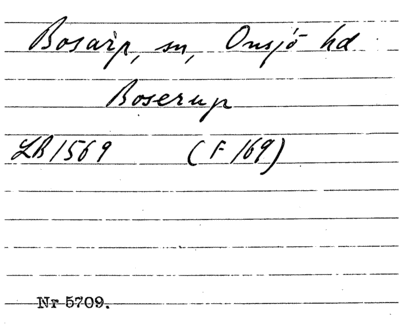 Bosarp, sn, Onsjö hd
Boserup
LB 1569 (F 169)
Nr 5709.